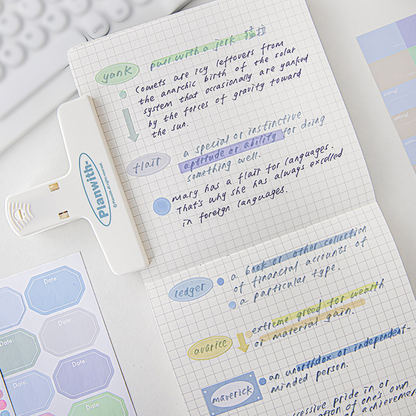 yank
pull with a jerk
Comets are icy leftovers from
the anarchic birth of the solar
system that occasionally are yanked
by the forces of gravity toward
the sun.
flair
a special or instinctive
aptitude or ability for doing
something well.
Mary has a flair for languages.
That's why she has always excelled
in foreign languages.
Planwith.
ledger
a book or other collection
of financial accounts of
a particular type.
avarice
extreme greed for wealth
or material gain.
maverick
an unorthodox or independent-
minded person.
excessive pride in or
of one's own
Date
Date
Date
Date
Date